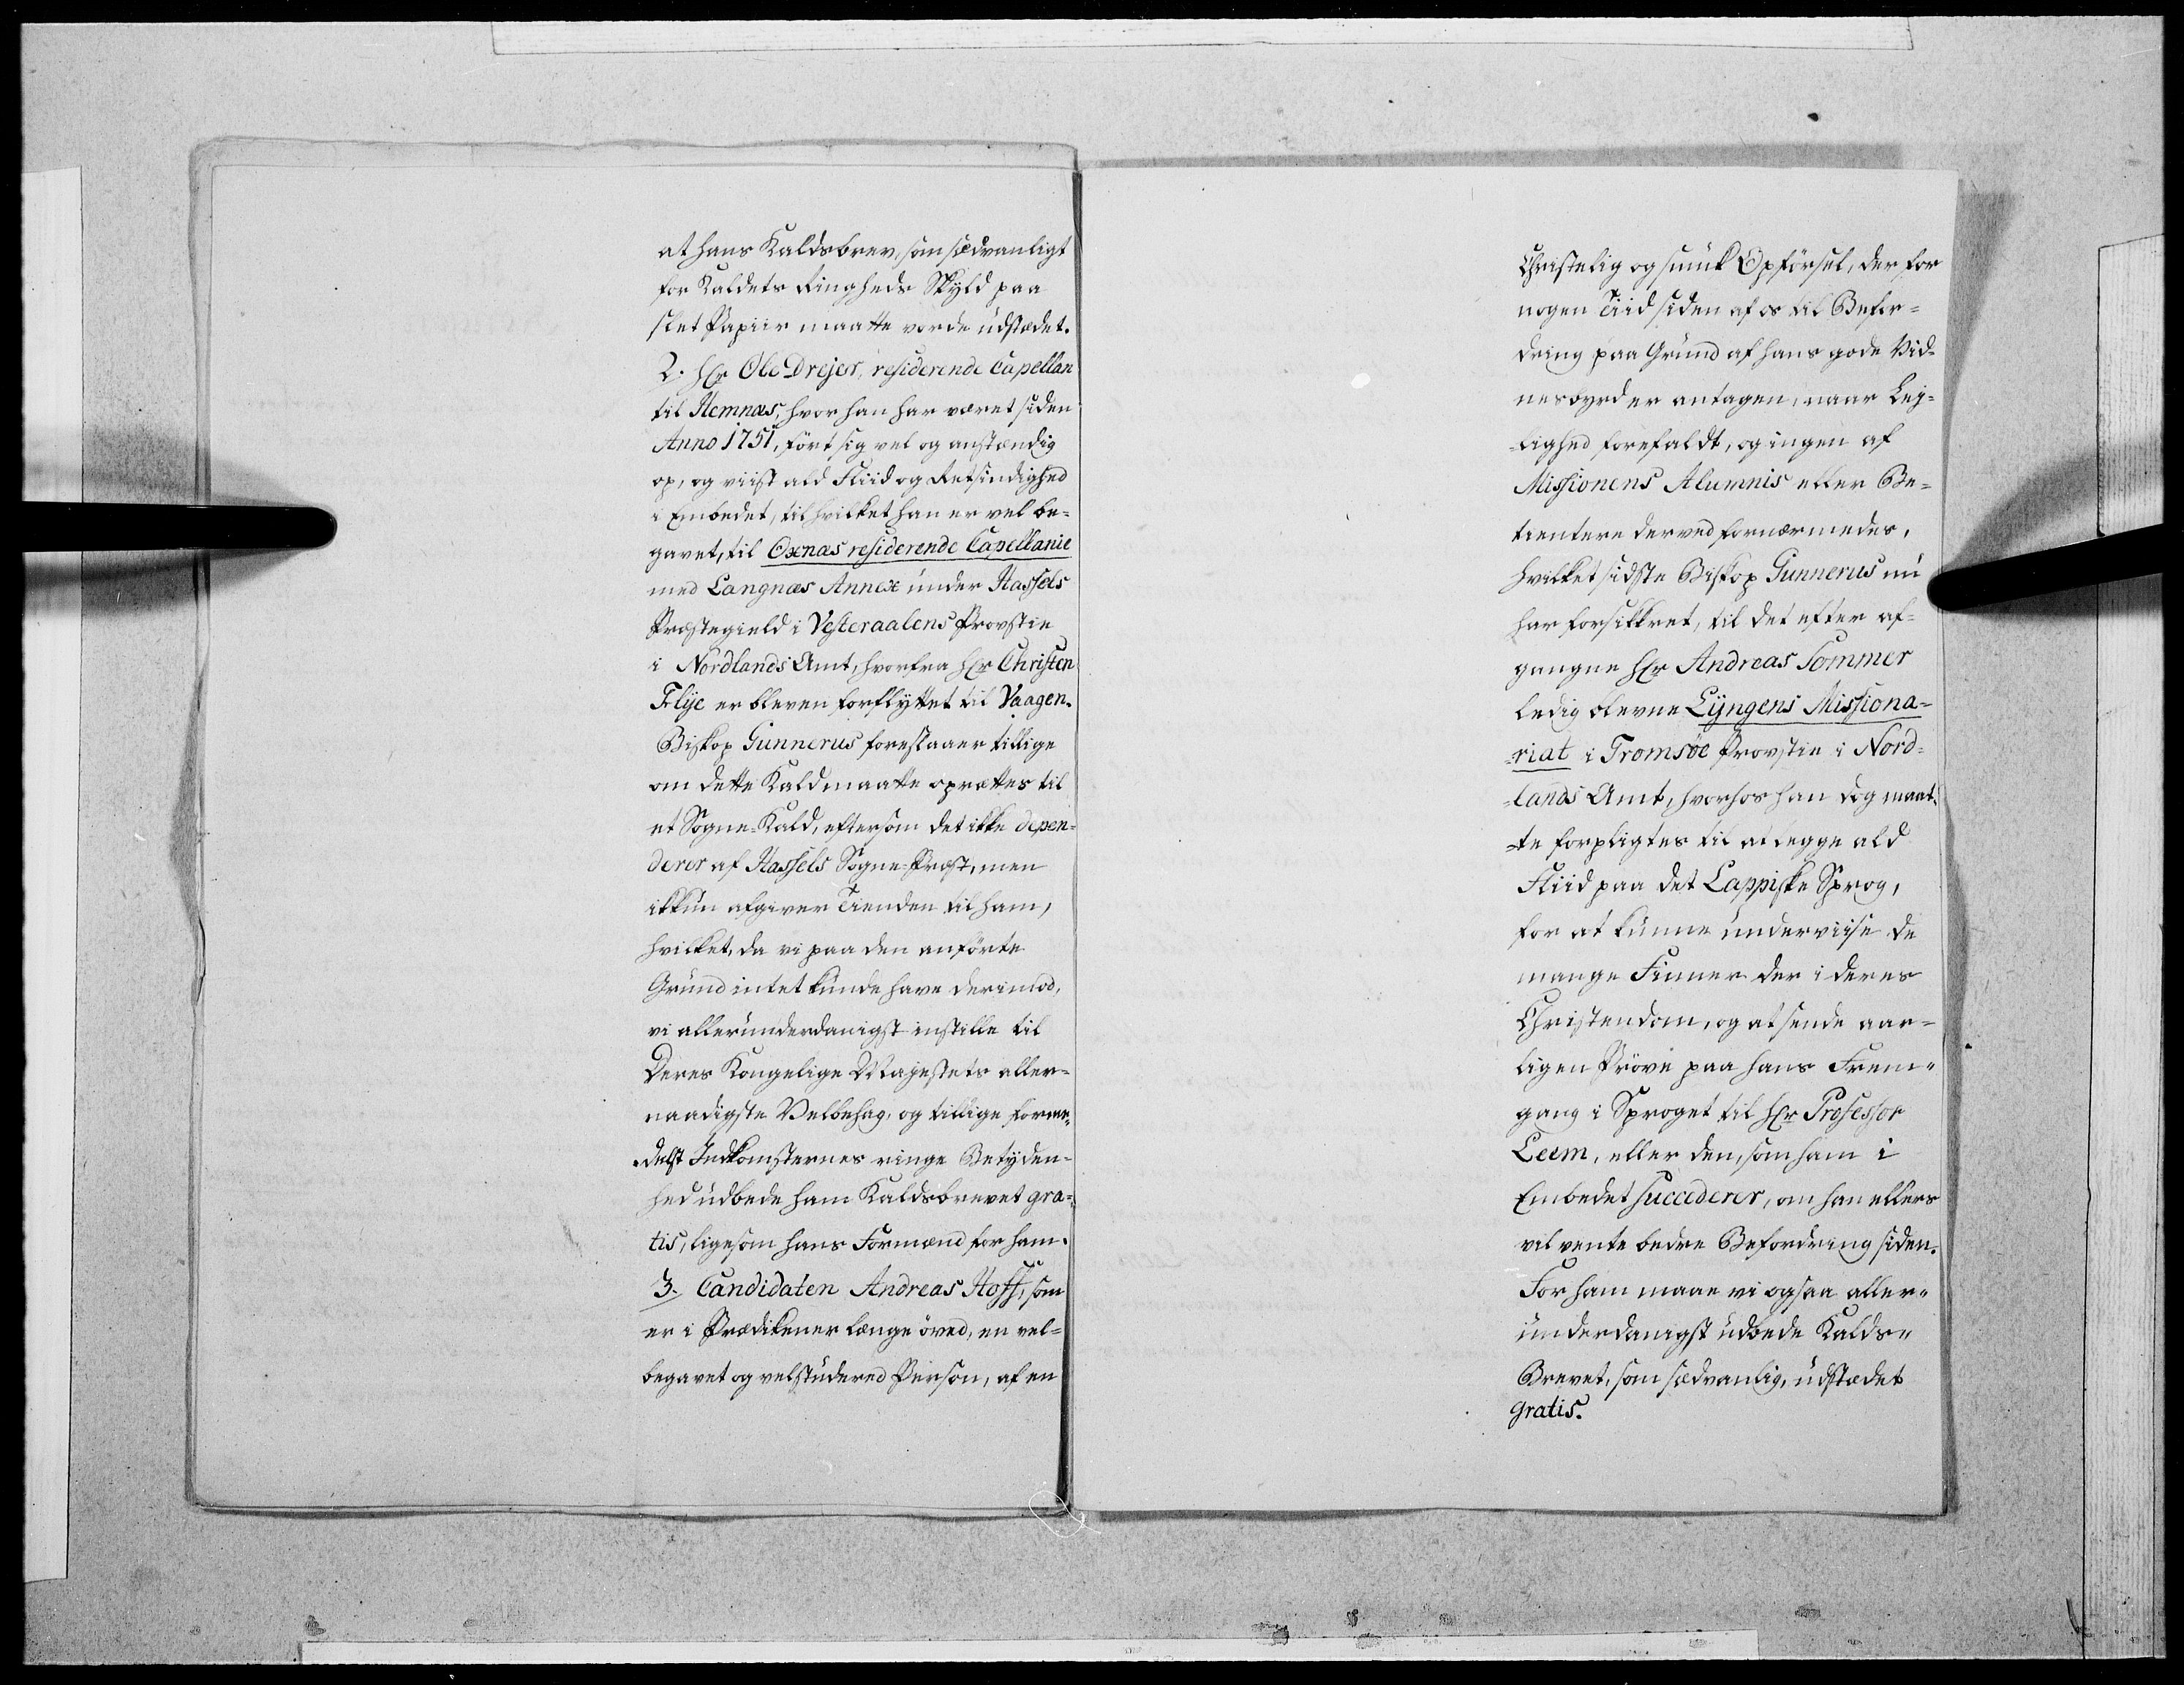 at hans Kaldsbrev, som sædvanligt
for Kaldets Ringheds Skyld paa
slet Papiir maatte vorde udstædet.
2. Hr Ole Drejer, residerende Capellan
til Hemnæs, hvor han har været siden
Anno 1751, ført sig vel og anstændig
op, og viist ald Fliid og Retsindighed
i Embedet, til hvilket han er vel be=
gavet, til Oxnæs residerende Capellanie
med Langnæs Annex under Hassels
Præstegield i Vesteraalens Provstie
i Nordlands Amt, hvorfra Hr Christen
Flye er bleven forflyttet til Vaagen.
Biskop Gunnerus forestaaer tillige
om dette Kald maatte oprettes til
et Sogne-Kald, eftersom det ikke depen=
derer af Hassels Sogne-Præst, men
ikkun afgiver Tienden til ham,
hvilket, da vi paa den anførte
Grund intet kunde have derimod,
vi allerunderdanigst instille til
Deres Kongelige Majestets aller=
naadigste Velbehag, og tillige forme=
delst Indkomsternes ringe Betyden=
hed udbede ham Kaldsbrevet gra=
tis, ligesom hans Formænd for ham.
3. Candidaten Andreas Hoff, som
er i Prædikener længe øved, en vel=
begavet og velstudered Person, af en
Christelig og smuk Opførsel, der for
nogen Tiid siden af os til Befor=
dring paa Grund af hans gode Vid=
nesbyrd er antagen, naar Lej=
=lighed forefaldt, og ingen af
Missionens Alumnis eller Be=
tientere derved fornærmedes,
hvilket sidste Biskop Gunnerus nu
har forsikkret, til det efter af=
gangne Hr Andreas Sommer
ledig blevne Lyngens Missiona=
=riat i Tromsøe Provstie i Nord=
=lands Amt, hvorhos han dog maat=
=te forpligtes til at legge ald
Fliid paa det Lappiske Sprog,
for at kunne underviise de
mange Finner der i deres
Christendom, og at sende aar=
ligen Prøve paa hans Frem=
gang i Sproget til Hr Professor
Leem, eller den, som ham i
Embedet succederer, om han ellers
vil vente bedre Befordring siden.
For ham maae vi ogsaa aller=
underdanigst udbede Kalds=
Brevet, som sædvanlig, udstædet
gratis.